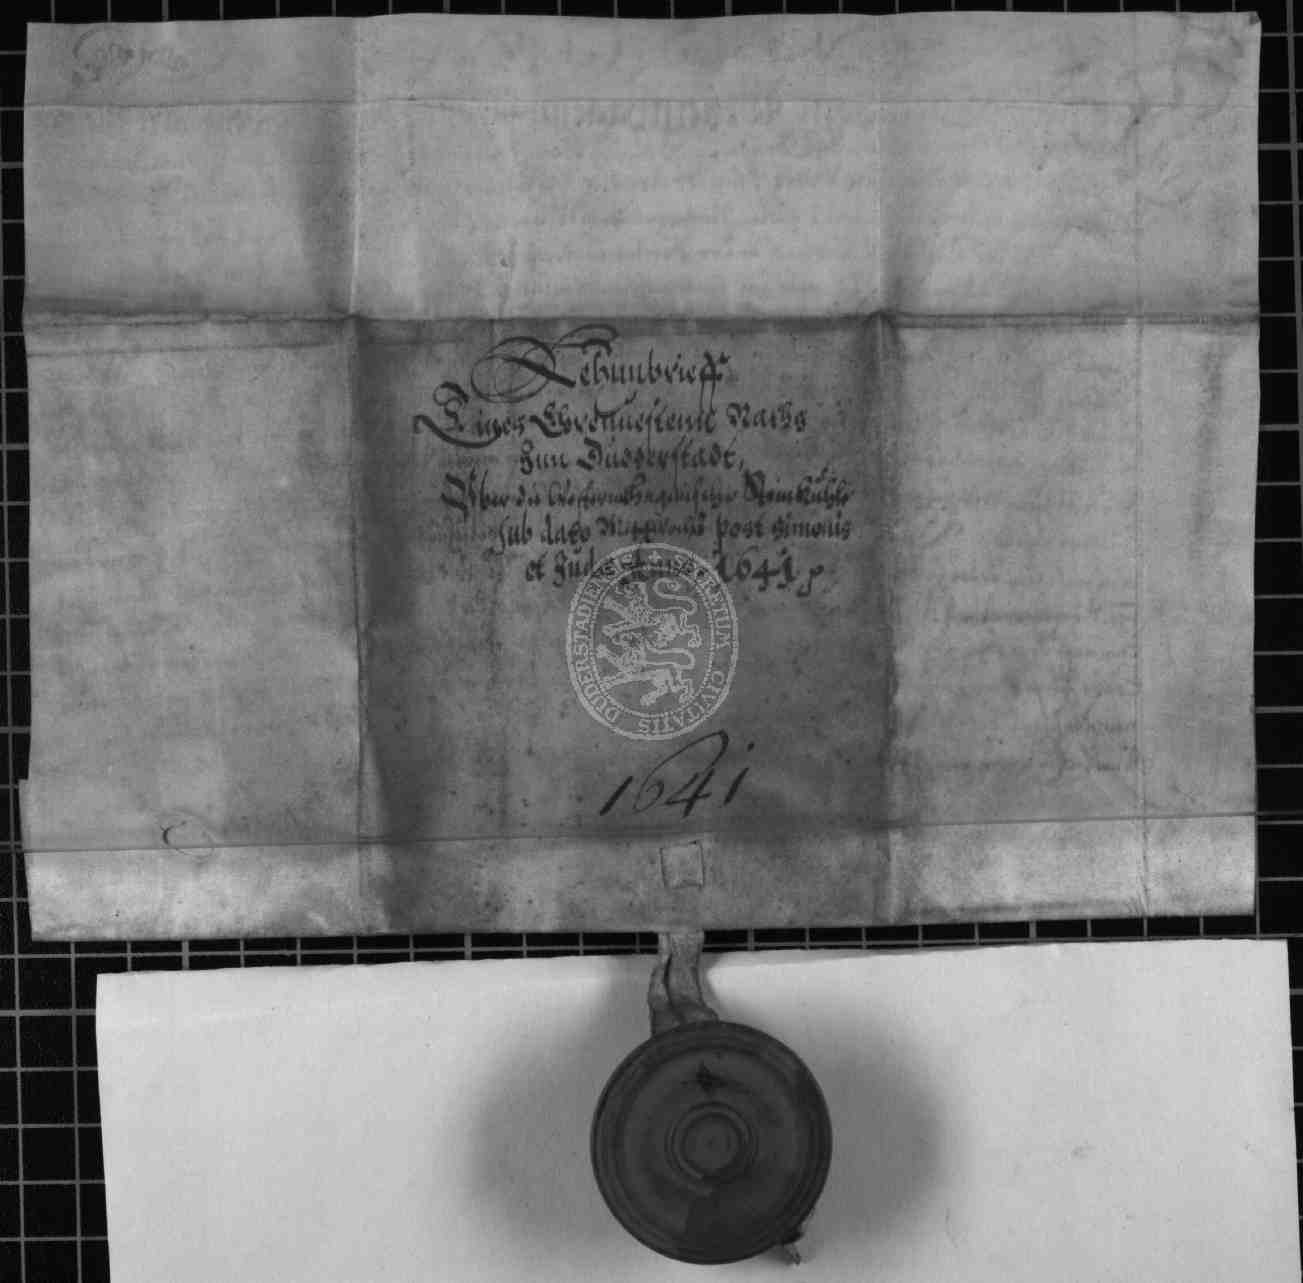 Lehunbrieff
Eines Ehrnuestenn Raths
Zuu Duderstadt,
Über die Steinkuhle
sub dato Mittwochs post Simonis
et Judæ Anno 1641
SECRETUM CIVITATIS DUDERSTADIENSIS
1641